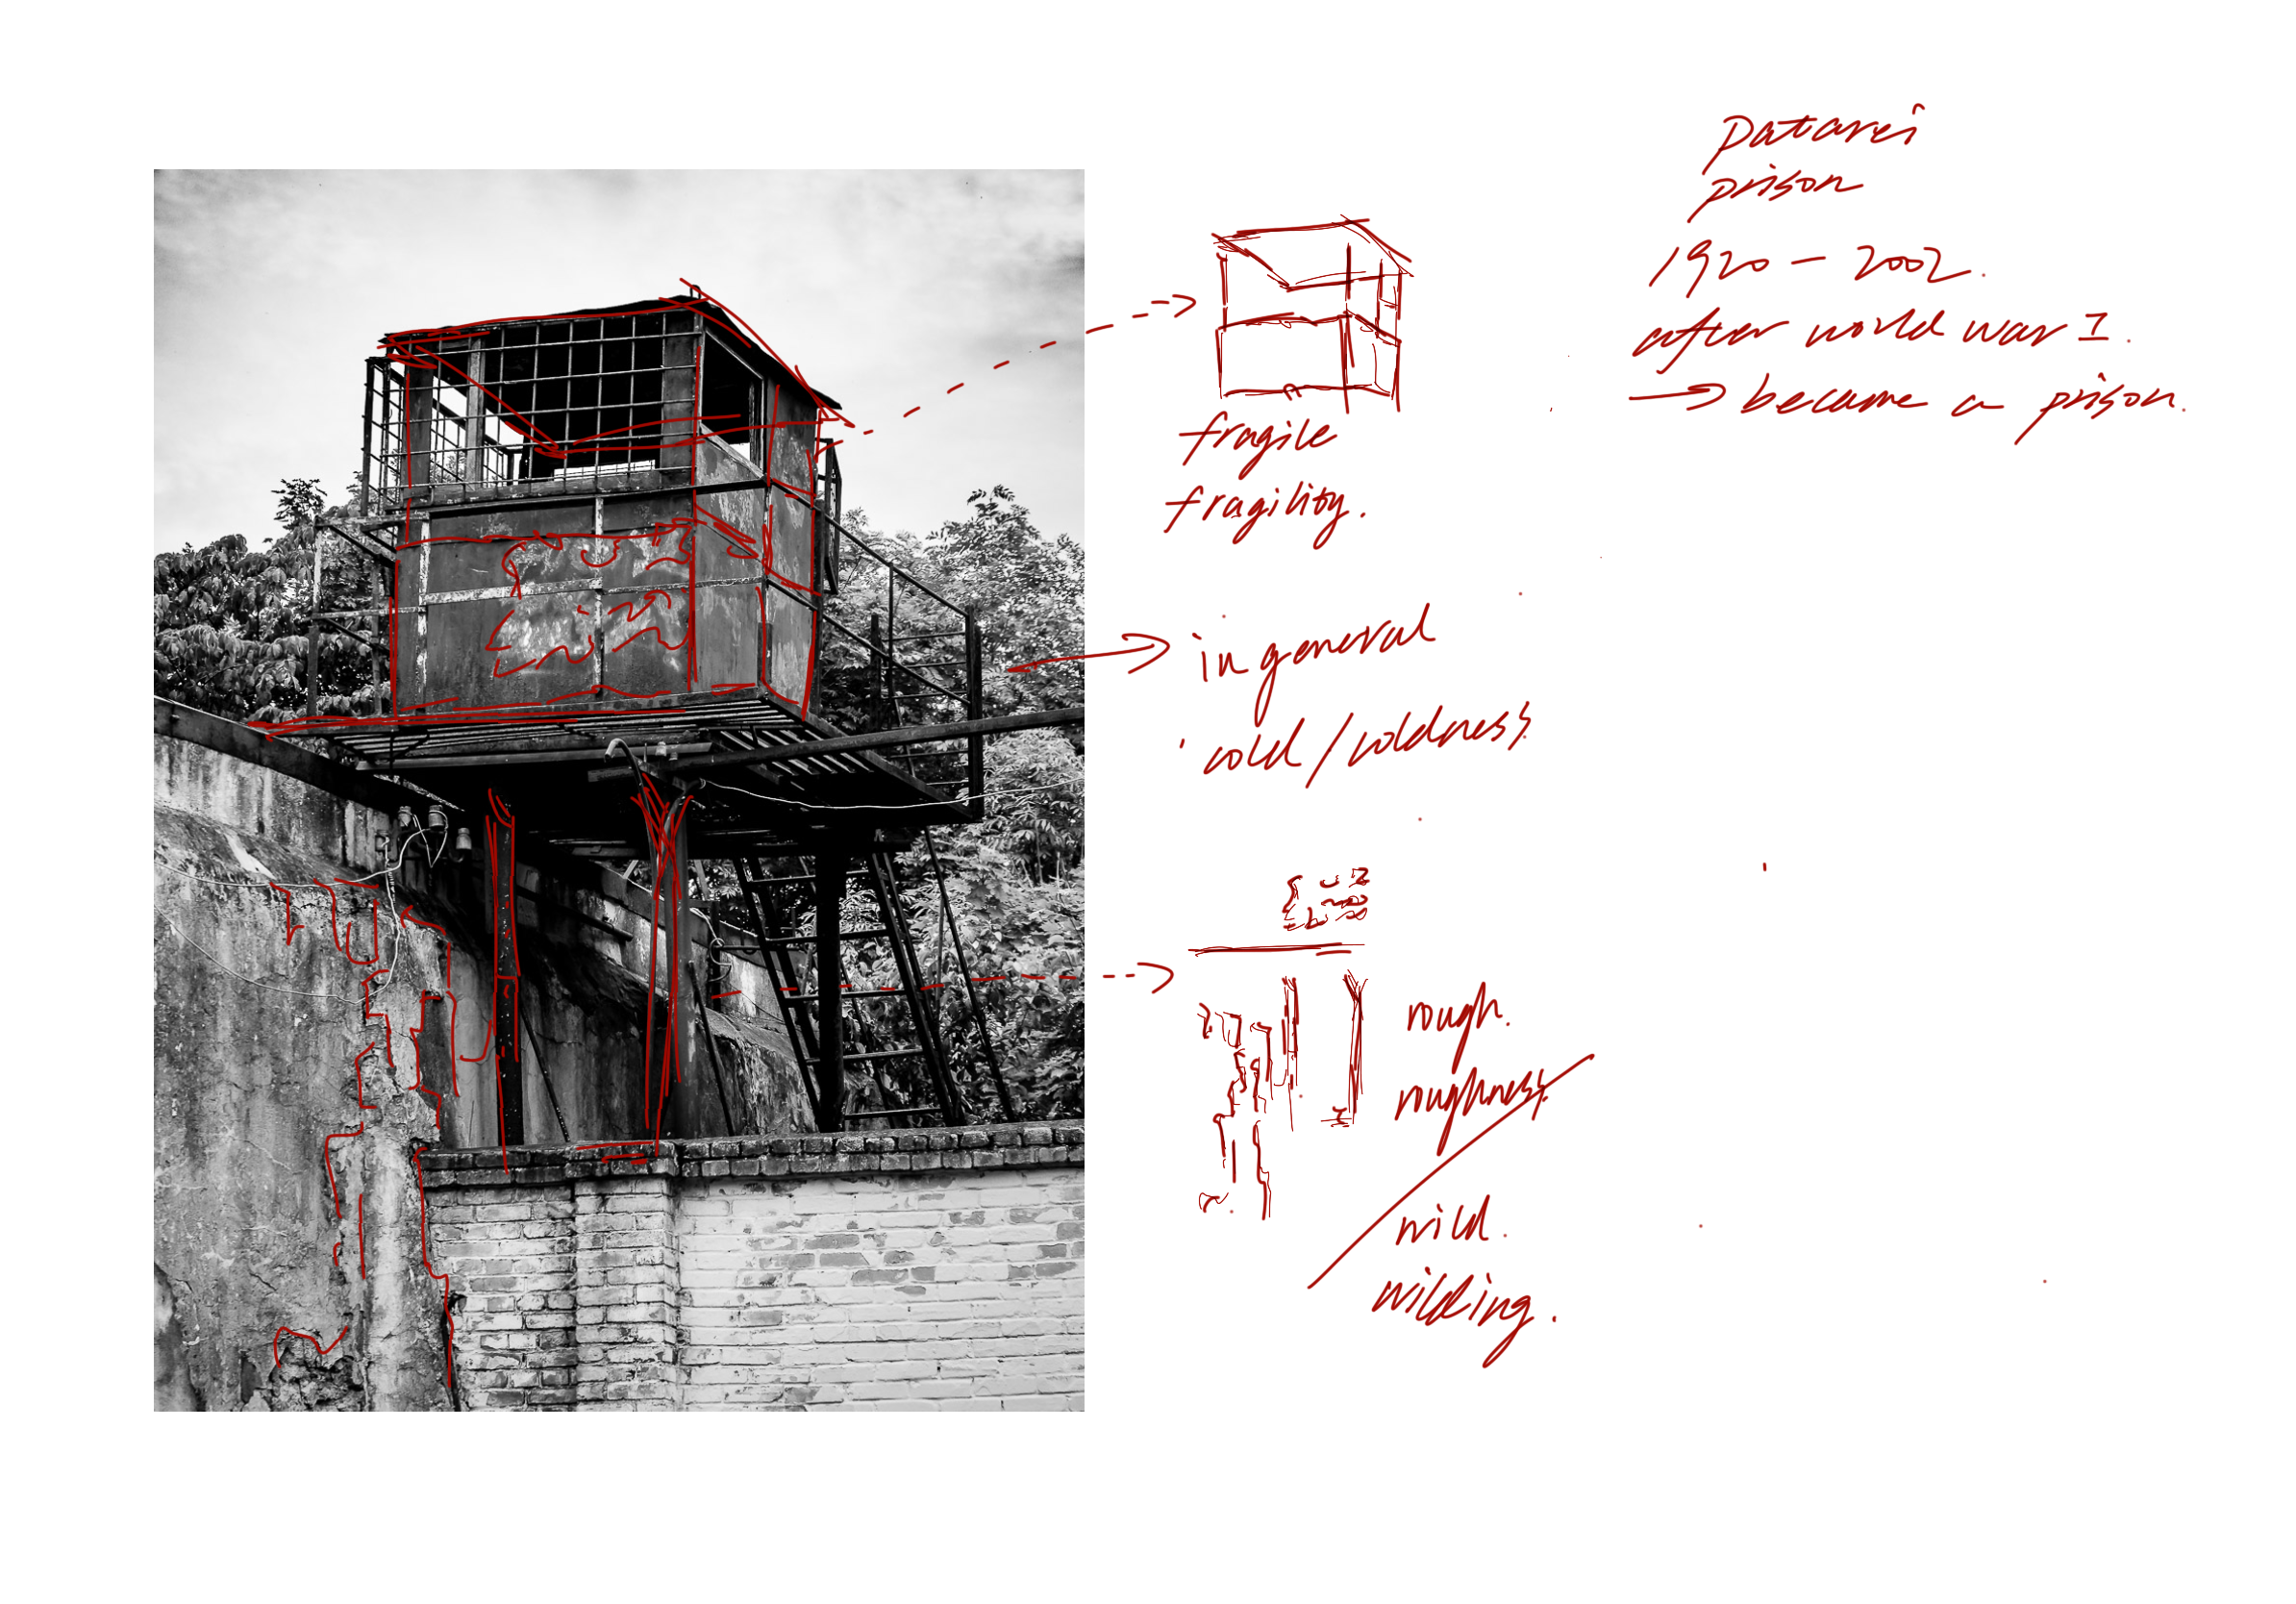 patarei
prison
1920 - 2002.
after world war I.
→ became a prison.
fragile
fragility.
in general
cold/coldness
rough.
roughness.
wild.
wilding.